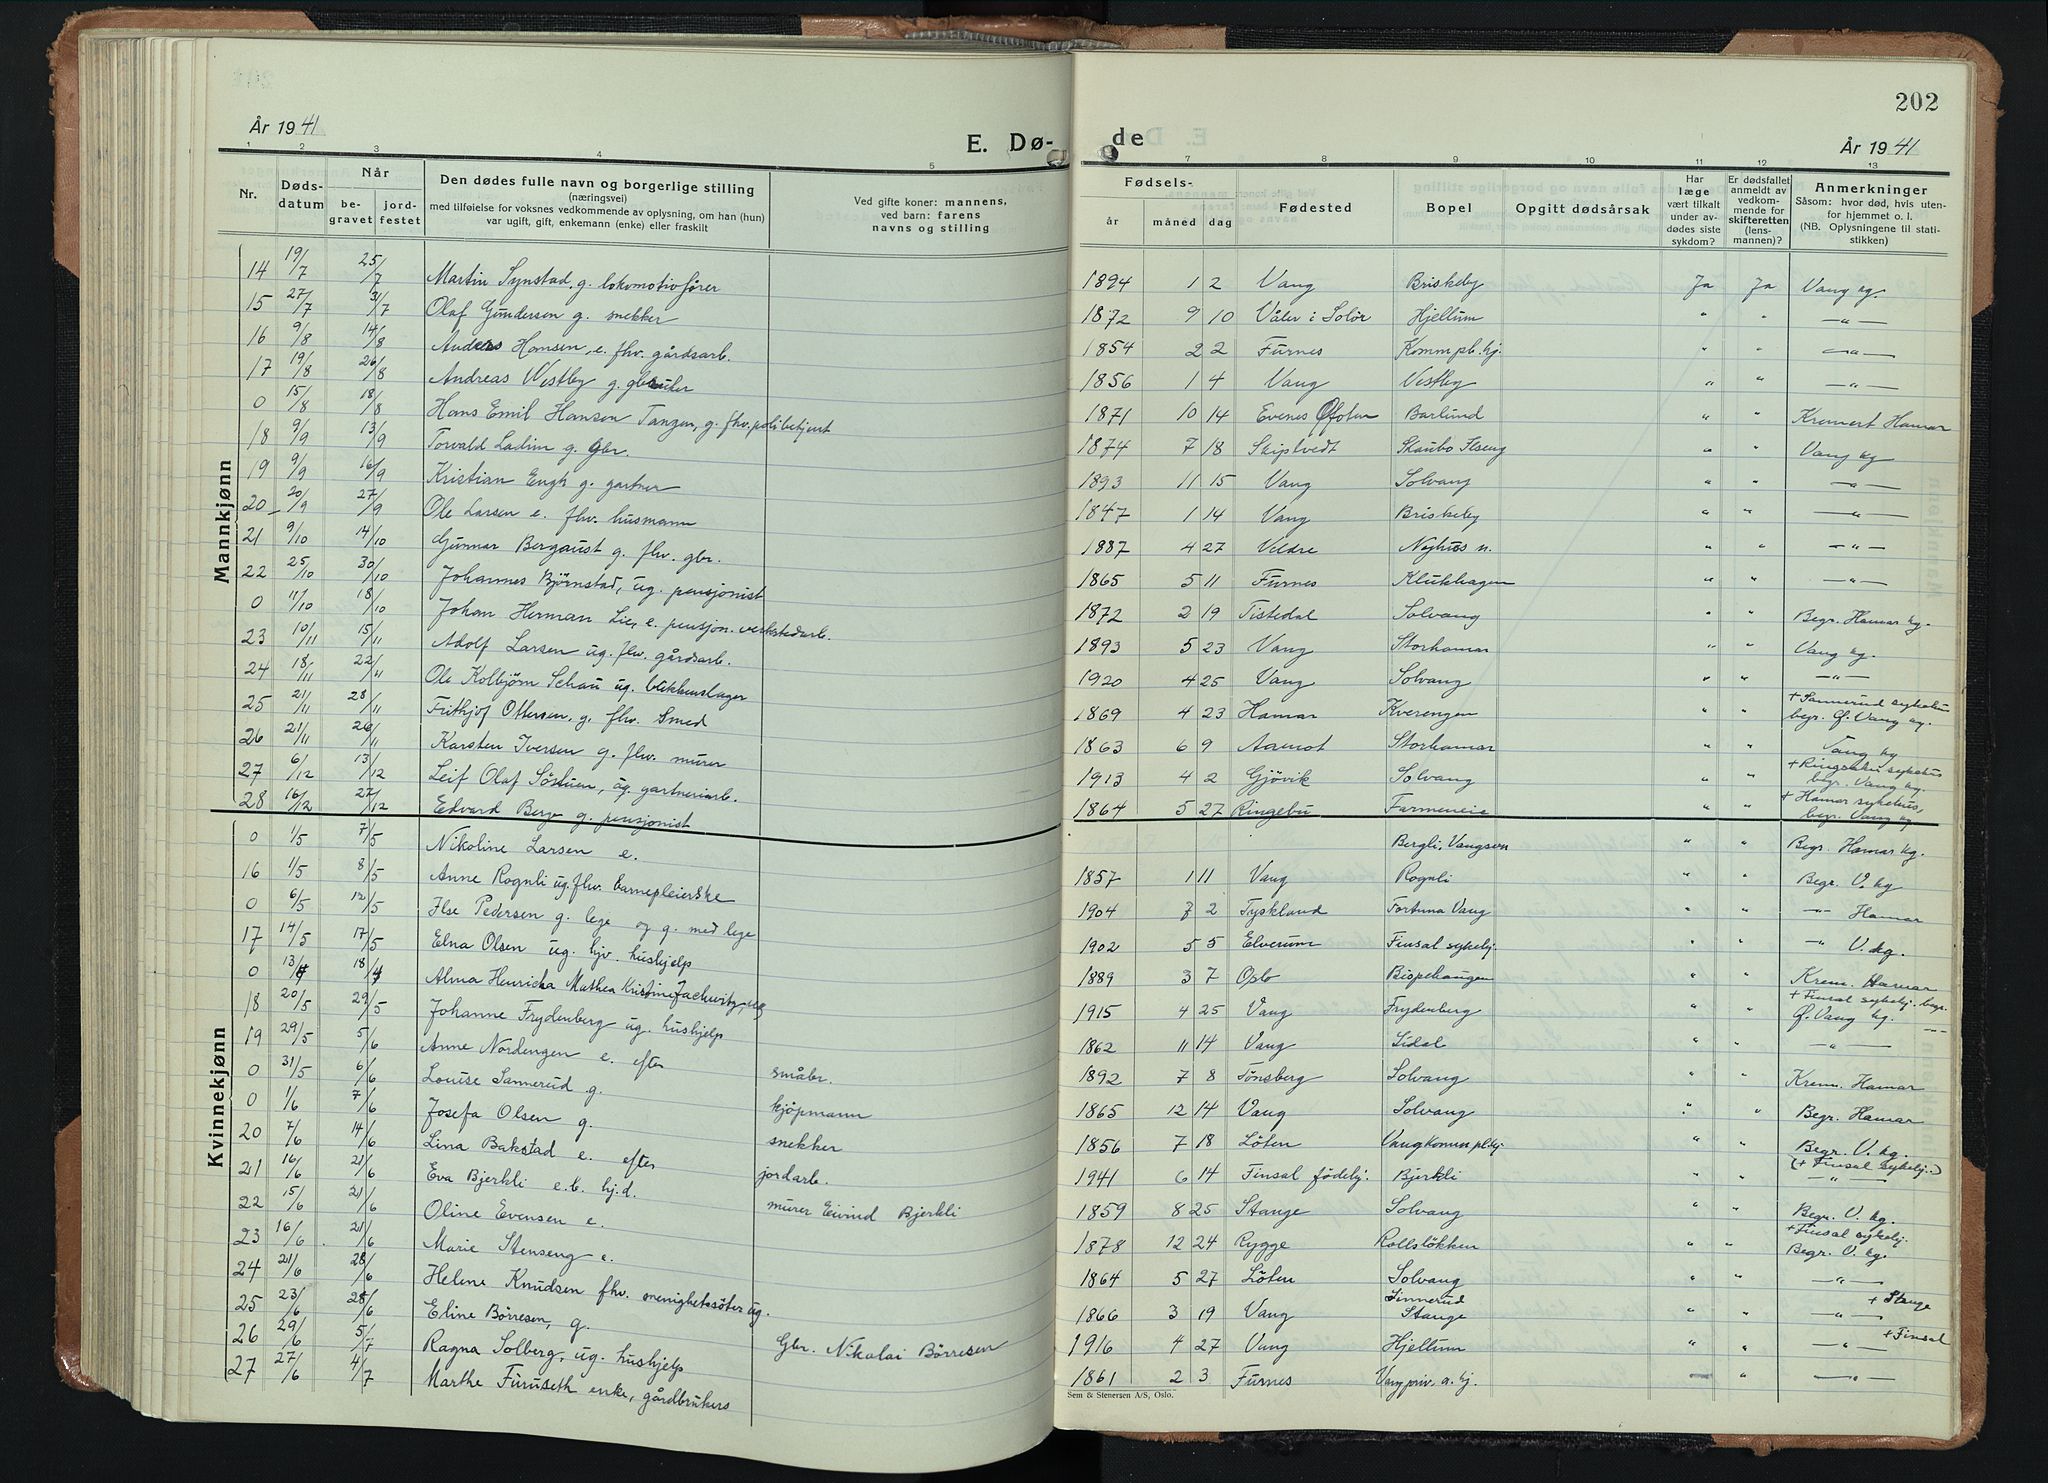 År 1941
E. Dø-
1 2 3 4 5
Nr.
Døds-
datum
Når
be-
gravet
jord-
festet
Den dødes fulle navn og borgerlige stilling
(næringsvei)
med tilføielse for voksnes vedkommende av oplysning, om han (hun)
var ugift, gift, enkemann (enke) eller fraskilt
Ved gifte koner: mannens,
ved barn: farens
navns og stilling
Mannkjønn
14 19/7 25/7 Martin Synstad, g. lokomotivfører
15 27/7 31/7 Olaf Gundersen g. snekker
16 9/8 14/8 Anders Hansen, e. fhv. gårdsarb.
17 19/8 26/8 Andreas Westby g. gbruker
0 15/8 18/8 Hans Emil Hansen Tangen, g. fhv. politibetjent
18 9/9 13/9 Torvald Ladim g. Gbr.
19 9/9 16/9 Kristian Engh g. gartner
20 20/9 27/9 Ole Larsen e. fhv. husmann
21 9/10 14/10 Gunnar Bergaust g. fhv. gbr.
22 25/10 30/10 Johannes Bjørnstad, ug. pensjonist
0 11/10 18/10 Johan Herman Lie, e. pensjon. verkstedarb.
23 10/11 15/11 Adolf Larsen ug. fhv. gårdsarb.
24 18/11 22/11 Ole Kolbjørn Schau ug. blikkenslager
25 21/11 28/11 Frithjof Ottersen, g. fhv. Smed
26 21/11 26/11 Karsten Iversen g. fhv. murer
27 6/12 13/12 Leif Olaf Söstuen, ug. gartneriarb.
28 16/12 27/12 Edvard Berge g. pensjonist
Kvinnekjønn
0 1/5 7/5 Nikoline Larsen e.
16 1/5 8/5 Anne Rognli ug. fhv. barnepleierske
0 6/5 12/5 Ilse Pedersen g. lege og g. med lege
17 14/5 17/5 Elna Olsen ug. hjv. hushjelp
0 13/4 18/4 Alma Henricka Mathea Kristine Zachwitz, ug
18 20/5 29/5 Johanne Frydenberg ug. hushjelp
19 29/5 5/6 Anne Nordengen e. efter småbr.
0 31/5 6/6 Louise Sannerud g. kjøpmann
0 1/6 7/6 Josefa Olsen g. snekker
20 7/6 14/6 Lina Bakstad e. efter jordarb.
21 16/6 21/6 Eva Bjerkli e.b. hj.d. murer Eivind Bjerkli
22 15/6 21/6 Oline Evensen e.
23 16/6 21/6 Marie Stenseng e.
24 21/6 28/6 Helene Knudsen fhv. menighetssöster ug.
25 23/6 28/6 Eline Börresen, g. Gbr. Nikolai Börresen
26 29/6 5/7 Ragna Solberg, ug. hushjelp
27 27/6 4/7 Marthe Furuseth enke, gårdbrukers
202
de
År 1941
7 8 9 10 11 12 13
Fødsels-
år måned dag
Fødested
Bopel
Opgitt dødsårsak
Har
læge
vært tilkalt
under av-
dødes siste
sykdom?
Er dødsfallet
anmeldt av
vedkom-
mende for
skifteretten
(lens-
mannen)?
Anmerkninger
Såsom: hvor død, hvis uten-
for hjemmet o. l.
(NB. Oplysningene til stati-
stikken)
1894 1 2 Vang Briskeby Ja Ja Vang kg.
1872 9 10 Våler i Solør Hjellum " " —"—
1854 2 2 Furnes Komm.pl.hj. " " —"—
1856 1 4 Vang Vestby " " —"—
1871 10 14 Evenes Ofoten Barlund " " Kremert Hamar
1874 7 18 Skiptvedt Skaubo Ilseng " " Vang kg
1893 11 15 Vang Solvang " " —"—
1847 1 14 Vang Briskeby " " —"—
1887 4 27 Veldre Nyhus n. " " —"—
1865 5 11 Furnes Klukhagen " " —"—
1872 2 19 Tistedal Solvang " " Begr. Hamar kg.
1893 5 23 Vang Storhamar " " Vang kg.
1920 4 25 Vang Solvang " " —"—
1869 4 23 Hamar Kverengen " " + Sannerud sykehus
begr. Ø. Vang kg.
1863 6 9 Aamot Storhamar " " Vang kg
1913 4 2 Gjövik Solvang " " + Ringsaker sykehus
begr. Vang kg.
1864 5 27 Ringebu Farmeneie " " + Hamar sykehus,
begr. Vang kg
Bergli, Vangsvn " " Begr. Hamar kg.
1857 1 11 Vang Rognli " " Begr. V. kg
1904 7 2 Tyskland Fortuna Vang " " —"— Hamar
1902 5 5 Elverum Finsal sykehj. " " —"— V. kg.
1889 3 7 Oslo Bispehaugen " " Krem. Hamar
1915 4 25 Vang Frydenberg " " + Finsal sykehj. begr.
Ø. Vang kg.
1862 11 14 Vang Lidal " " —"—
1892 7 8 Tønsberg Solvang " " Krem. Hamar
1865 12 14 Vang Solvang " " Begr. Hamar
1856 7 18 Löten Vang komm.pl.hj. " " Begr. V. kg.
(+ Finsal sykehj.)
1941 6 14 Finsal fødehj. Bjerkli " " —"—
1859 8 25 Stange Solvang " " Begr. V. kg.
1878 12 24 Rygge Rollsløkken " " + Finsal sykehj.
Begr. V. kg.
1864 5 27 Löten Solvang " " —"—
1866 3 19 Vang Sinnerud
Stange " " —"— + Stange
1916 4 27 Vang Hjellum " " —"— + Finsal
1861 2 3 Furnes Vang priv. a. hj. — " —"—
Sem & Stenersen A/S, Oslo.